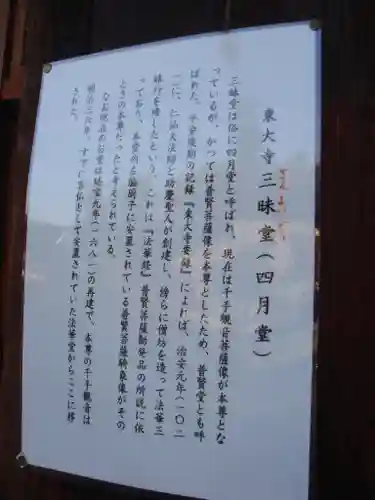 東大寺 三昧堂(四月堂)
さんまいどう
三昧堂は俗に四月堂と呼ばれ、現在は千手観音菩薩像が本尊とな
っているが、かつては普賢菩薩像を本尊としたため、普賢堂とも呼
ばれた。平安後期の記録『東大寺要録』によれば、治安元年(一〇二
一)に、仁仙大法師と助慶聖人が創建し、傍らに僧坊を造って法華三
昧行を修したという。これは『法華経』普賢菩薩勧発品の所説に依
っており、本堂の右脇厨子に安置されている普賢菩薩騎象像がその
ときの本尊だったと考えられている。
なお現在のお堂は延宝元年(一六八一)の再建で、本尊の千手観音は
明治三〇年、すでに客仏として安置されていた法華堂からここに移
された。